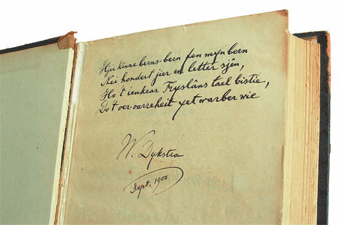 Hjir kinne berns-bern fen myn bern
Nei hondert jier en letter sjên,
Ho 't ienkear Fryslâns tael bistie,
Do't oer-oarreheit yet warber wie
W. Dykstra
Sept. 1900